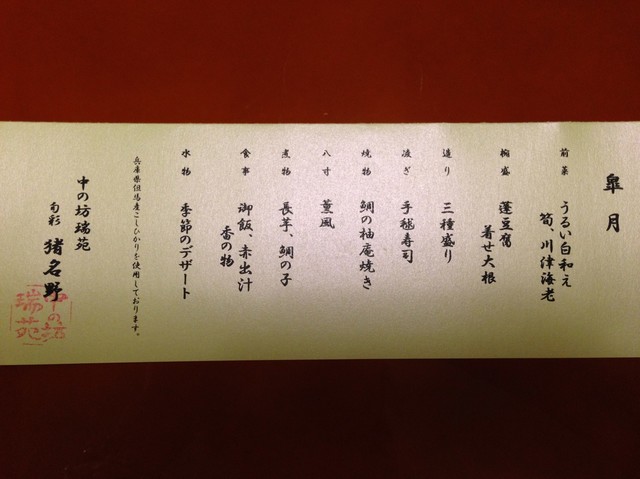 皐月
前菜 うるい白和え
筍、川津海老
椀盛 蓬豆腐
着せ大根
造り 三種盛り
凌ぎ 手毬寿司
焼物 鯛の柚庵焼き
八寸 薫風
煮物 長芋、鯛の子
食事 御飯、赤出汁
香の物
水物 季節のデザート
兵庫県但馬産こしひかりを使用しております。
中の坊瑞苑
旬彩 猪名野
中の坊
瑞苑